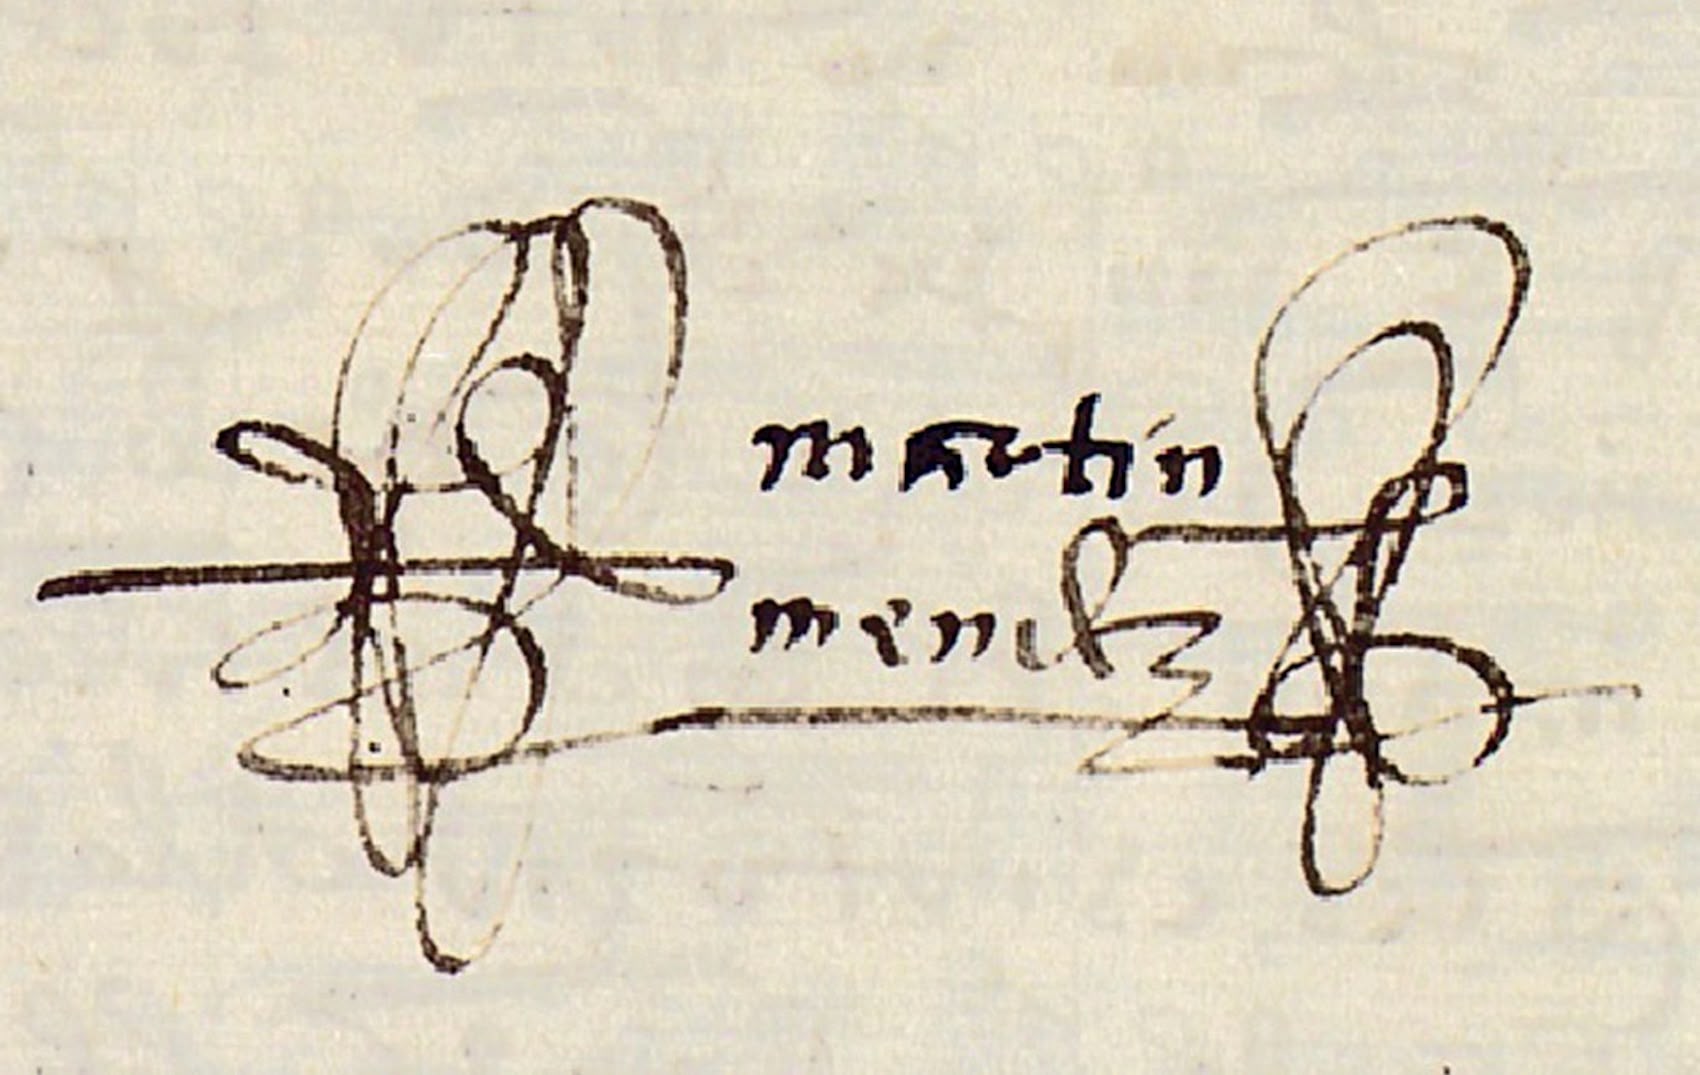 martin
mendez